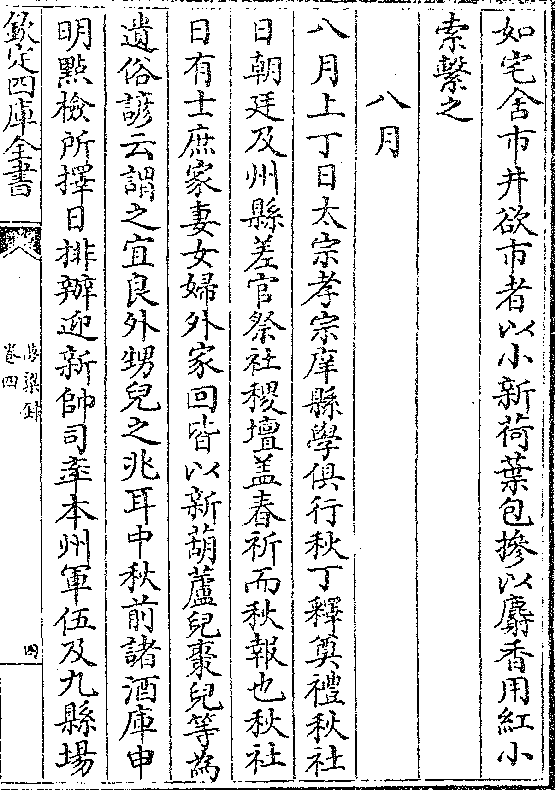 如宅舍市井欲市者以小新荷葉包摻以麝香用紅小
索繫之
八月
八月上丁日太宗孝宗庠縣學俱行秋丁釋奠禮秋社
日朝廷及州縣差官祭社稷壇盖春祈而秋報也秋社
日有士庶家妻女婦外家回皆以新葫蘆兒棗兒等為
遺俗諺云謂之宜良外甥兒之兆耳中秋前諸酒庫申
明點檢所擇日排辦迎新帥司率本州軍伍及九縣場
欽定四庫全書
夢粱錄
卷四
四